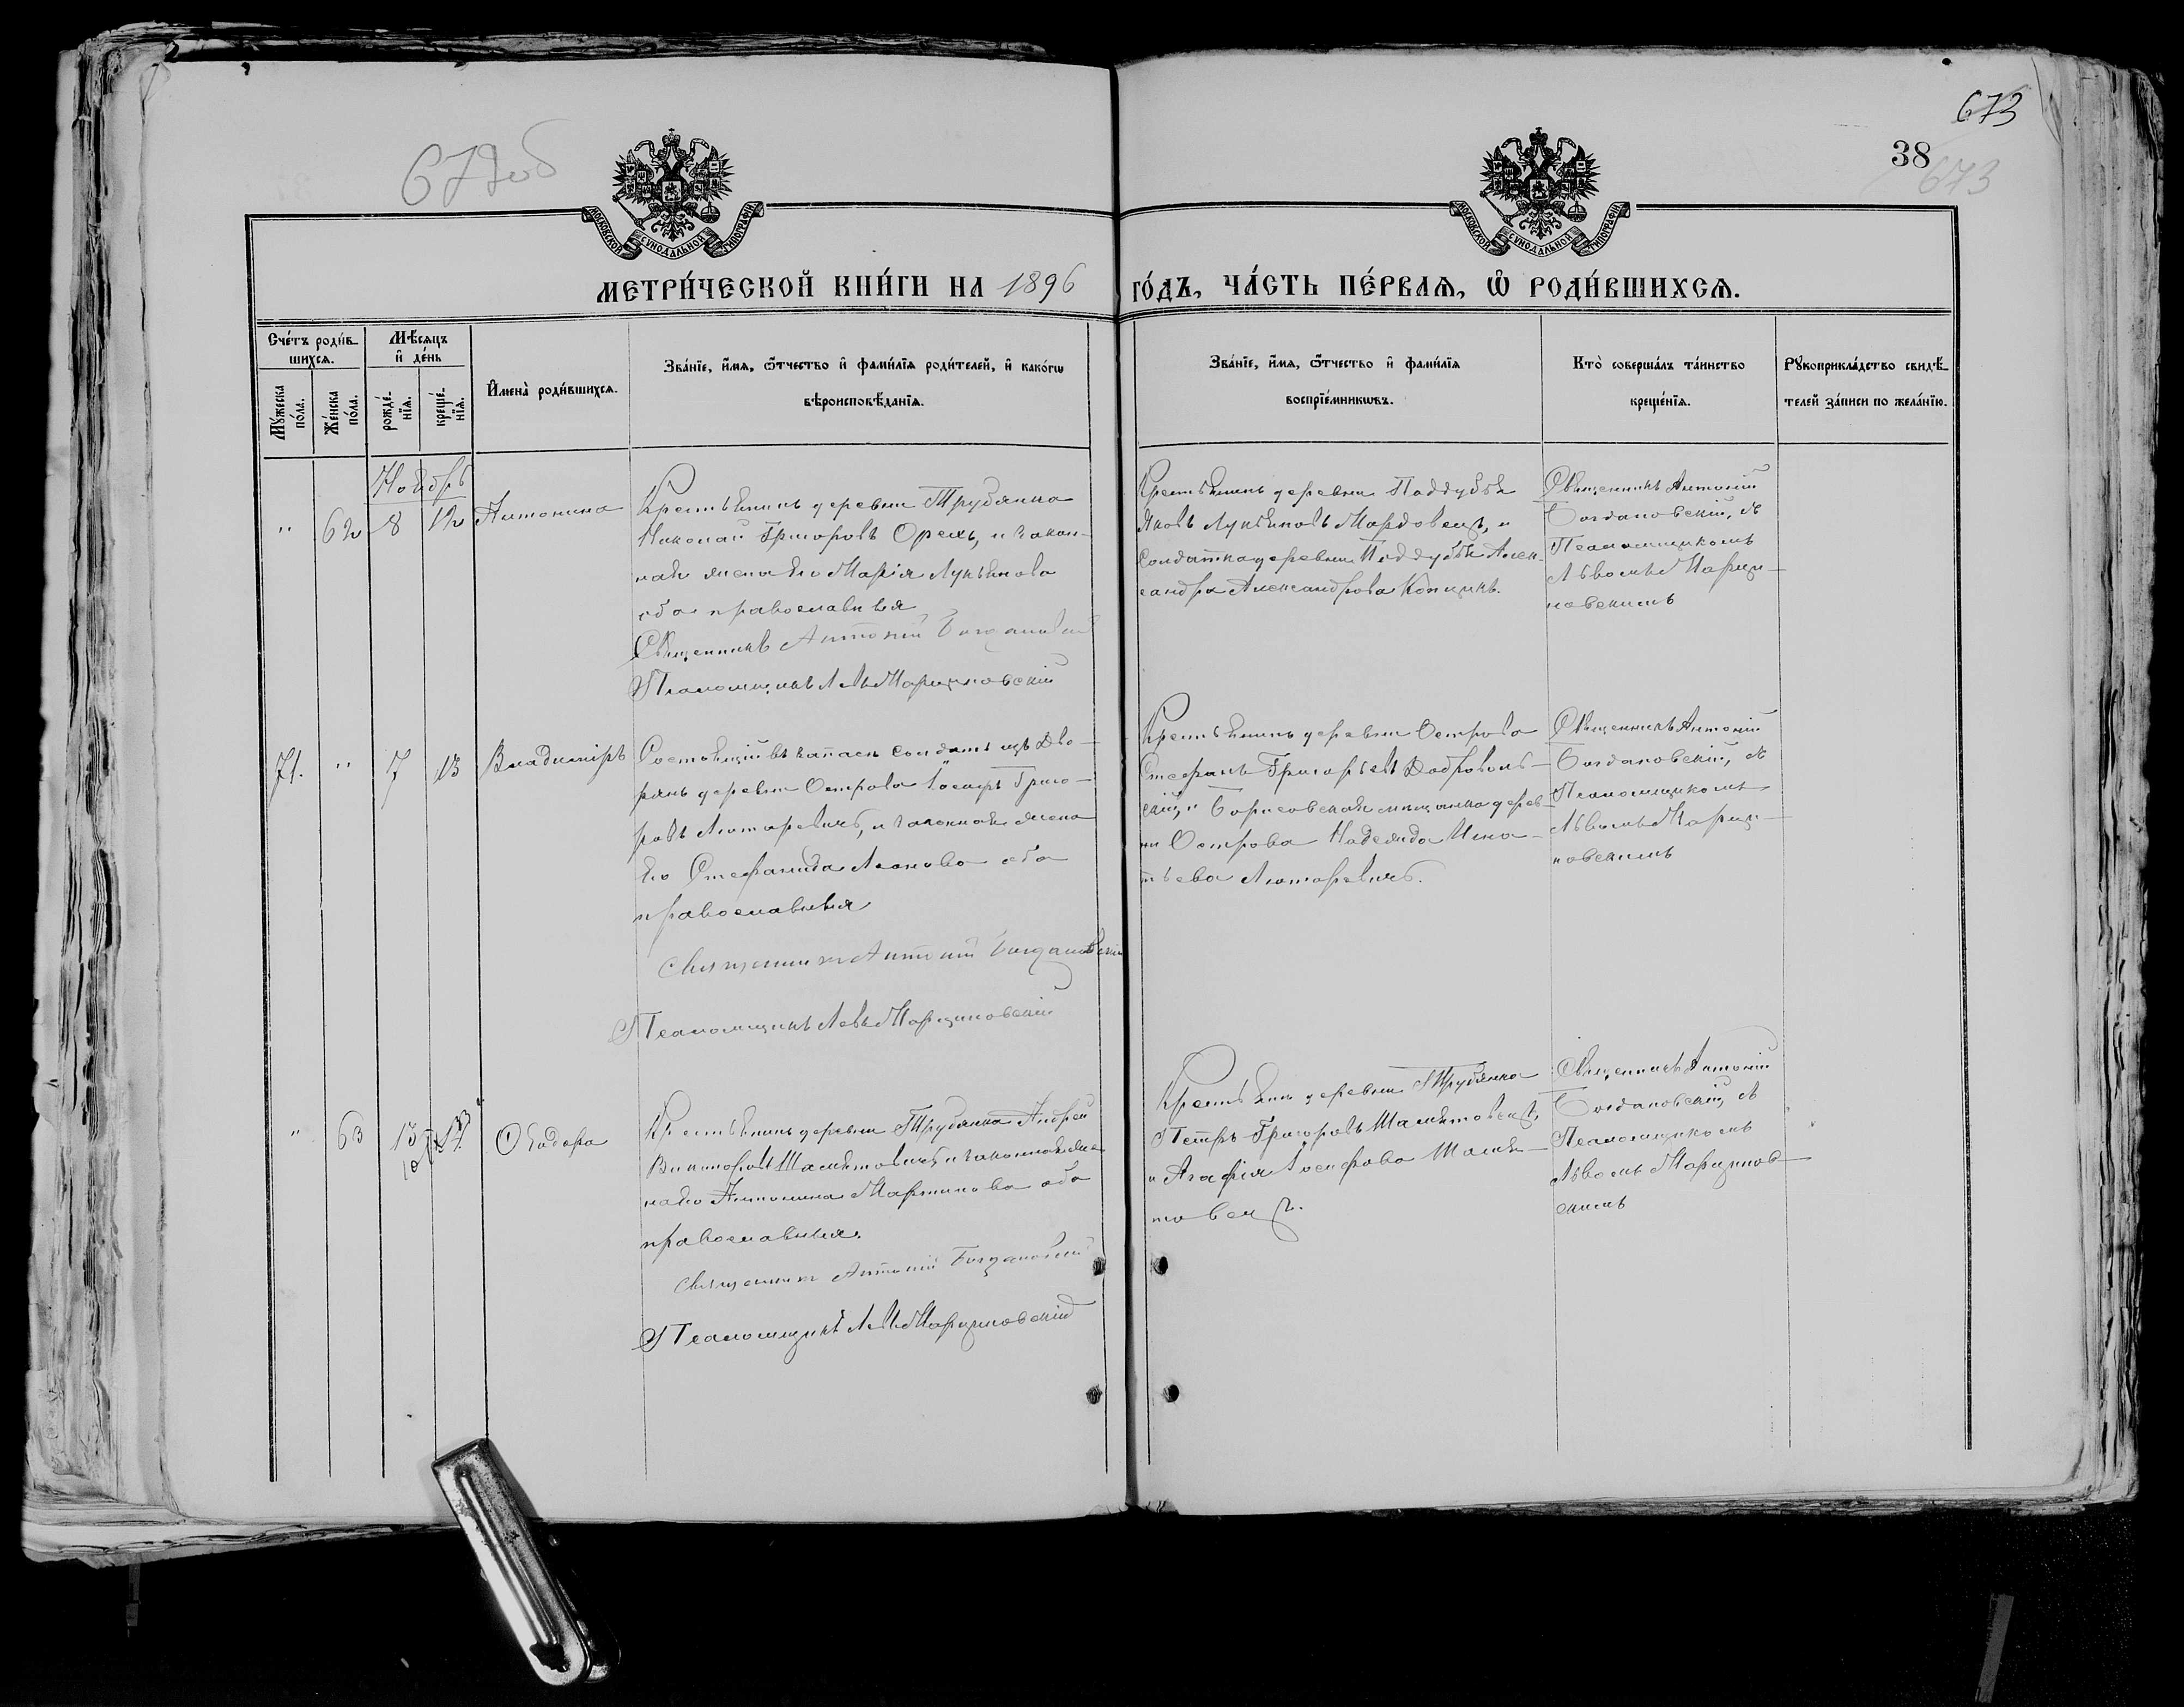 673
672об
38
673
МОСКОВСКОЙ СѴНОДАЛЬНОЙ ТИПОГРАФІИ
МОСКОВСКОЙ СѴНОДАЛЬНОЙ ТИПОГРАФІИ
МЕТРИ́ЧЕСКОЙ КНИ́ГИ НА 1896 ГО́ДЪ, ЧА́СТЬ ПЕ́РВАѦ, Ѡ РОДИ́ВШИХСѦ.
Сче́тъ роди́в-
шихсѧ.
Мꙋжеска по́ла.
Же́нска по́ла.
Мѣ́сѧцъ
и҆ де́нь
рожде́-
нїѧ.
креще́-
нїѧ.
И҆мена̀ роди́вшихсѧ.
Зва́нїе, и҆́мѧ, ѻ҆́тчество и҆ фами́лїѧ роди́телей, и҆ како́гѡ
вѣроисповѣ́данїѧ.
Зва́нїе, и҆́мѧ, ѻ҆́тчество и҆ фами́лїѧ
воспрїе́мникѡвъ.
Кто̀ соверша́лъ та́инство
креще́нїѧ.
Рꙋкоприкла́дство свидѣ́-
телей за́писи по жела́нїю.
Ноябрь
" 62 8 12 Антонина
Крестьянинъ деревни Трубянка
Николай Григоровъ Орелъ, и закон-
ная жена его Марія Лукьянова
оба православныя
Священникъ Антоній Богдановскій
Псаломщикъ Левъ Марциновскій
Крестьянинъ деревни Поддубья
Яковъ Лукьяновъ Мордовецъ, и
солдатка деревни Поддубья Алек-
сандра Александрова Копцикъ.
Священникъ Антоній
Богдановскій, съ
Псаломщикомъ
Львомъ Марци-
новскимъ
71. " 7 13 Владиміръ
Состоящій въ запасѣ солдатъ изъ Дво-
рянъ деревни Острова Іосифъ Григо-
ровъ Лютаревичъ, и законная жена
его Стефанида Леонова оба
православныя
Священникъ Антоній Богдановскій
Псаломщикъ Левъ Марциновскій
Крестьянинъ деревни Острова
Стефанъ Григорьевъ Доброволь-
скій, и Борисовская мещанка дерев-
ни Острова Надежда Игна-
тьева Лютаревичъ.
Священникъ Антоній
Богдановскій, съ
Псаломщикомъ
Львомъ Марци-
новскимъ
" 63 13 17 Ѳеодора
10
Крестьянинъ деревни Трубянка Андрей
Викторовъ Шаметовецъ, и законная же-
на его Антонина Мартинова оба
православныя.
Священникъ Антоній Богдановскій
Псаломщикъ Левъ Марциновскій
Крестьянинъ деревни Трубянка
Петръ Григоровъ Шаметовецъ,
и Агафія Іосифова Шаме-
товецъ.
Священникъ Антоній
Богдановскій, съ
Псаломщикомъ
Львомъ Марцинов-
скимъ